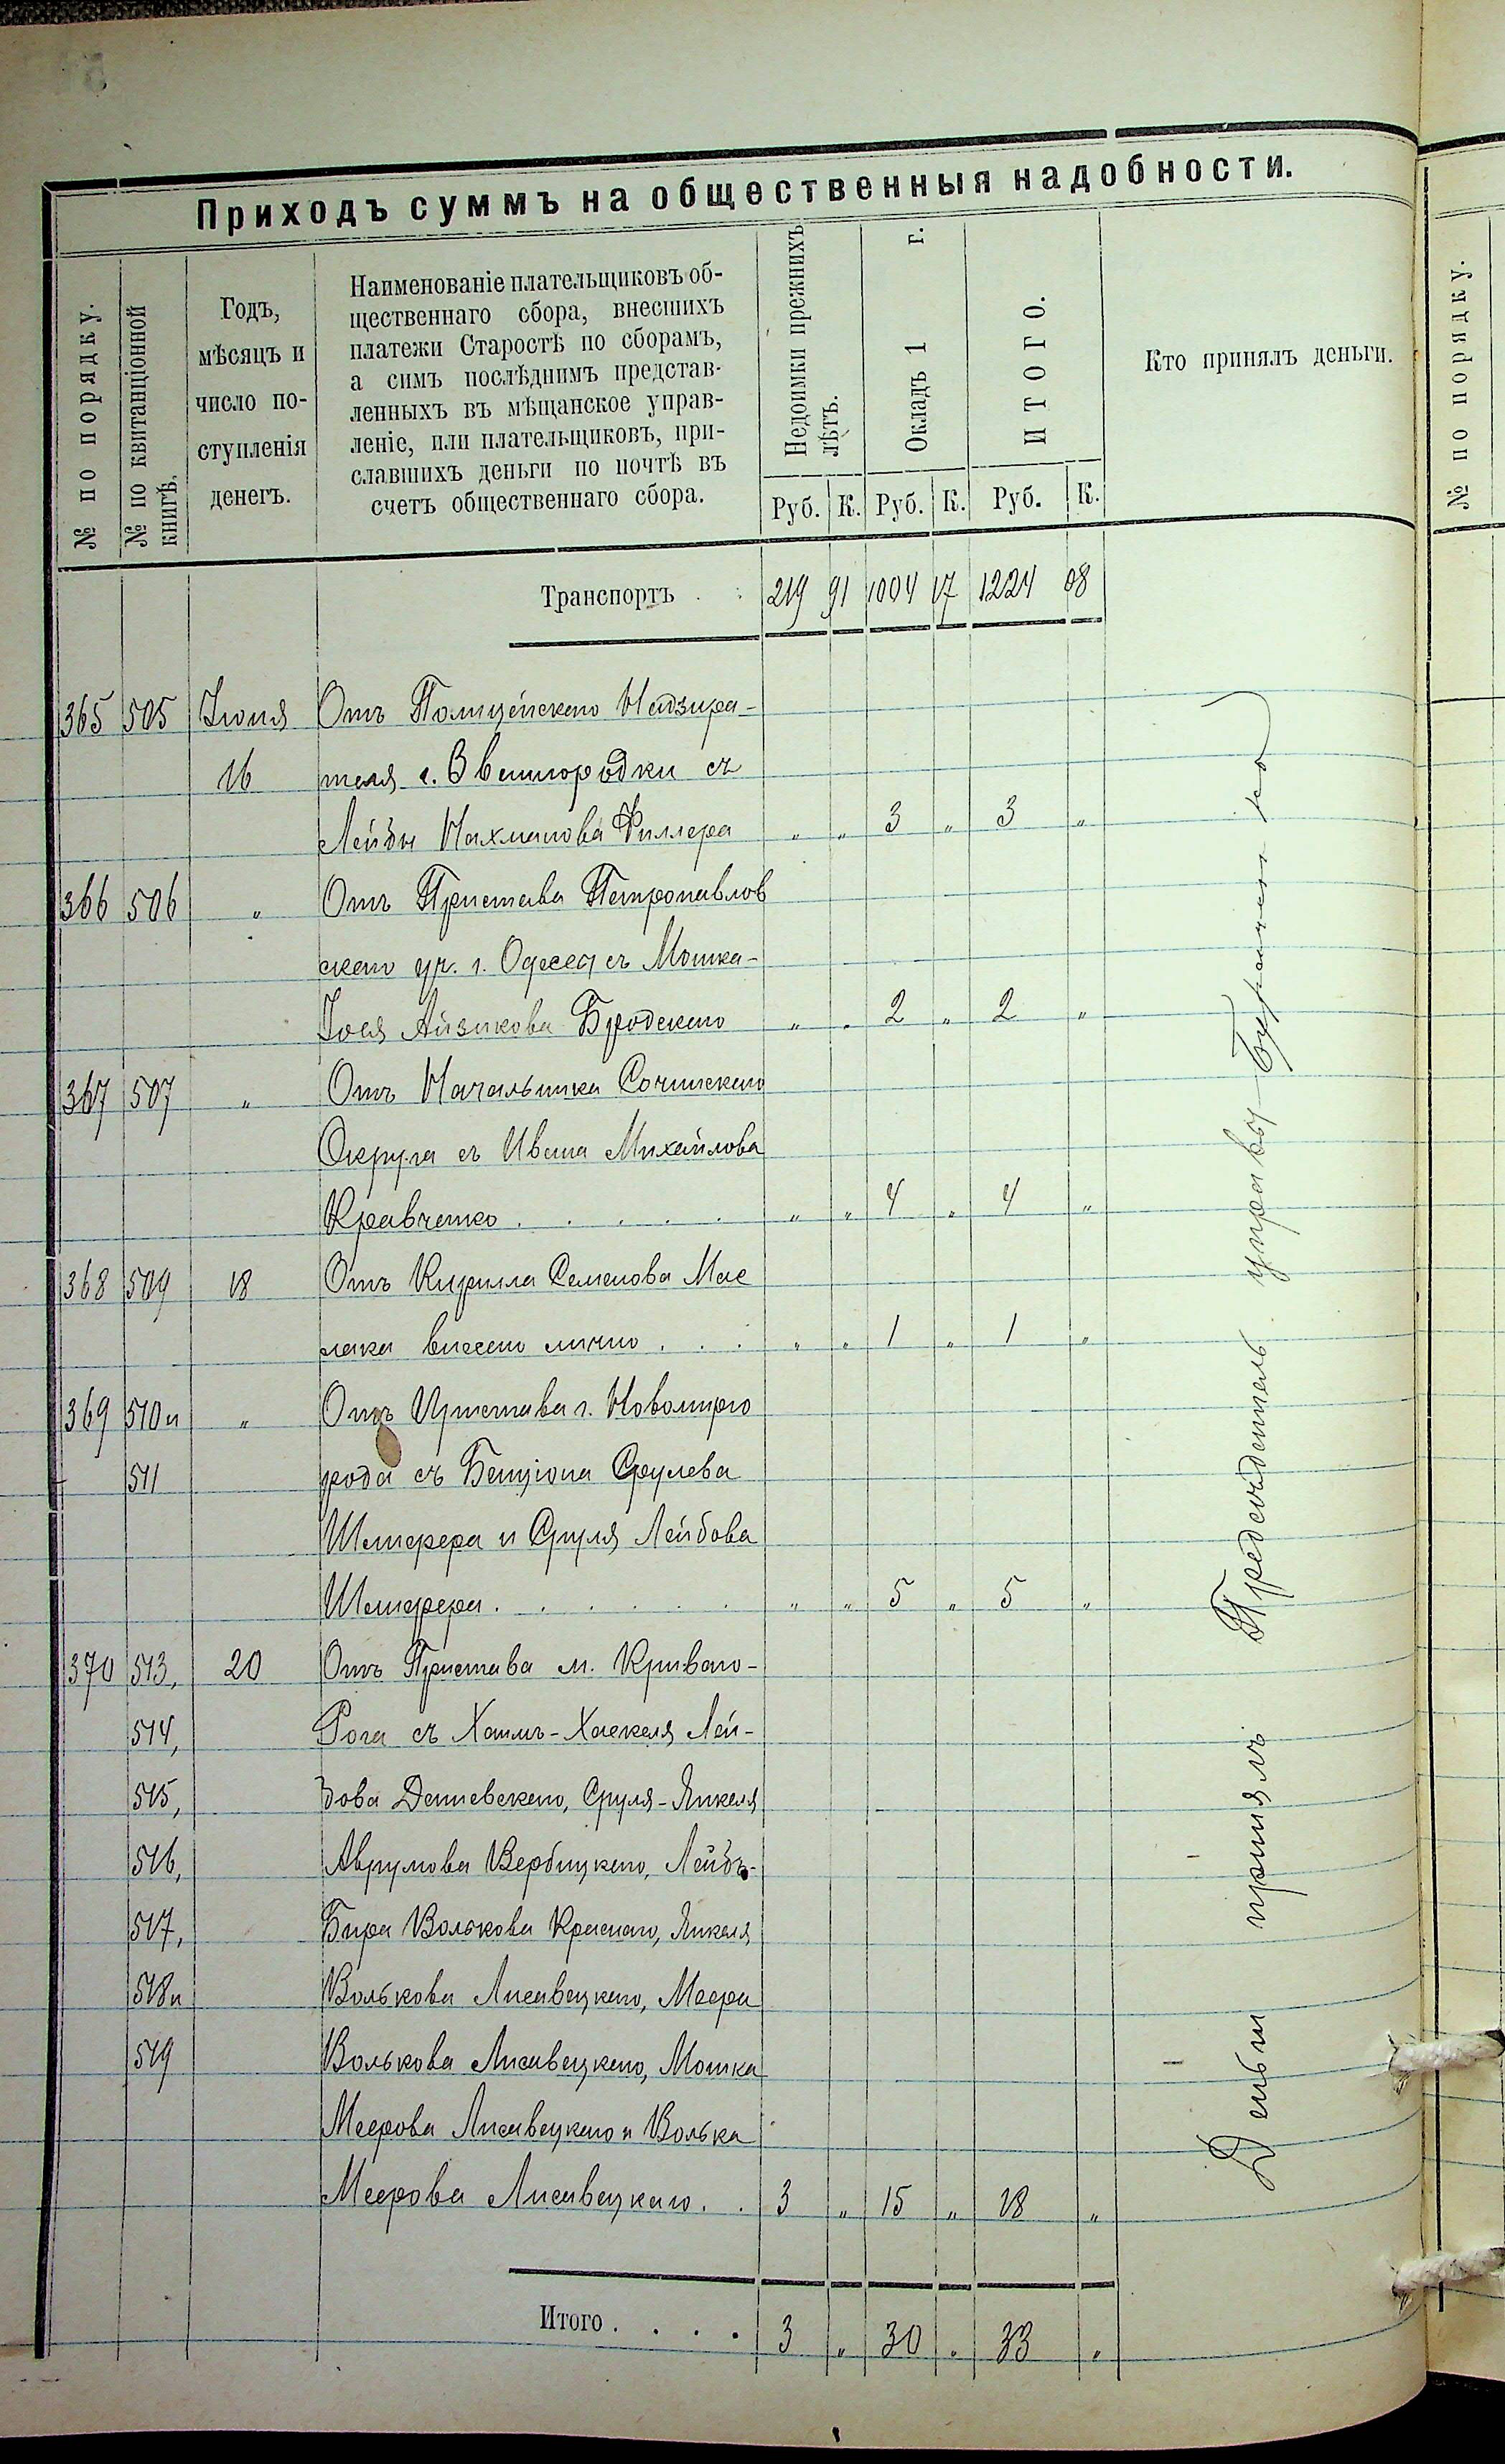 Приходъ суммъ на общественныя надобности.
№ по порядку.
№ по квитанціонной книгѣ.
Годъ,
мѣсяцъ и
число по-
ступленія
денегъ.
Наименованіе плательщиковъ об-
щественнаго сбора, внесшихъ
платежи Старостѣ по сборамъ,
а симъ послѣднимъ представ-
ленныхъ въ мѣщанское управ-
леніе, или плательщиковъ, при-
славшихъ деньги по почтѣ въ
счетъ общественнаго сбора.
Недоимки прежнихъ лѣтъ.
Окладъ 1 г.
ИТОГО.
Кто принялъ деньги.
Руб. К. Руб. К. Руб. К.
Транспортъ . . 219 91 1004 17 1224 08
365 505 Іюня Отъ Полицейскаго Надзира-
16 теля г. Звенигородки съ
Лейбы Нахманова Филлера " " 3 " 3 "
366 506 " Отъ Пристава Петропавлов
скаго уч. г. Одессы съ Мошка-
Іося Айзикова Бродскаго " " 2 " 2 "
367 507 " Отъ Начальника Сочинскаго
Округа съ Ивана Михайлова
Кравченко . . . . . " " 4 " 4 "
368 509 18 Отъ Кирилла Семенова Мас
лака внесено лично . . . " " 1 " 1 "
369 510 и " Отъ Пристава г. Новомирго
511 рода съ Бенціона Срулева
Шпигеря и Сруля Лейбова
" " 5 " 5 "
370 513, 20 Отъ Пристава м. Криваго-
514, Рога съ Хаимъ-Хаскеля Лей-
515, бова Дашевскаго, Сруля-Янкеля
516, Аврумова Вербицкаго, Лейбъ-
517, Бера Волькова Краснаго, Янкеля
518 и Волькова Лисавецкаго, Меера
519 Волькова Лисавецкаго, Мошка
Меерова Лисавецкаго и Волька
Меерова Лисавецкаго . . 3 " 15 " 18 "
Итого . . . . 3 " 30 " 33 "
Деньги принялъ Предсѣдатель управы
№ по порядку.